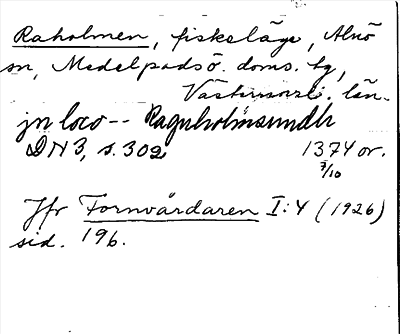 Raholmen, fiskeläge, Alnö
sn, Medelpads ö. doms. tg,
Västernorrl. län.
jn loco -- Ragnholmsundh
DN 3, s. 302 1374 or.
3/10
Jfr Fornvårdaren I:4 (1926)
sid. 196.